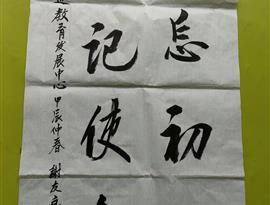 忘初
记使
教育发展中心 甲辰仲春 謝友